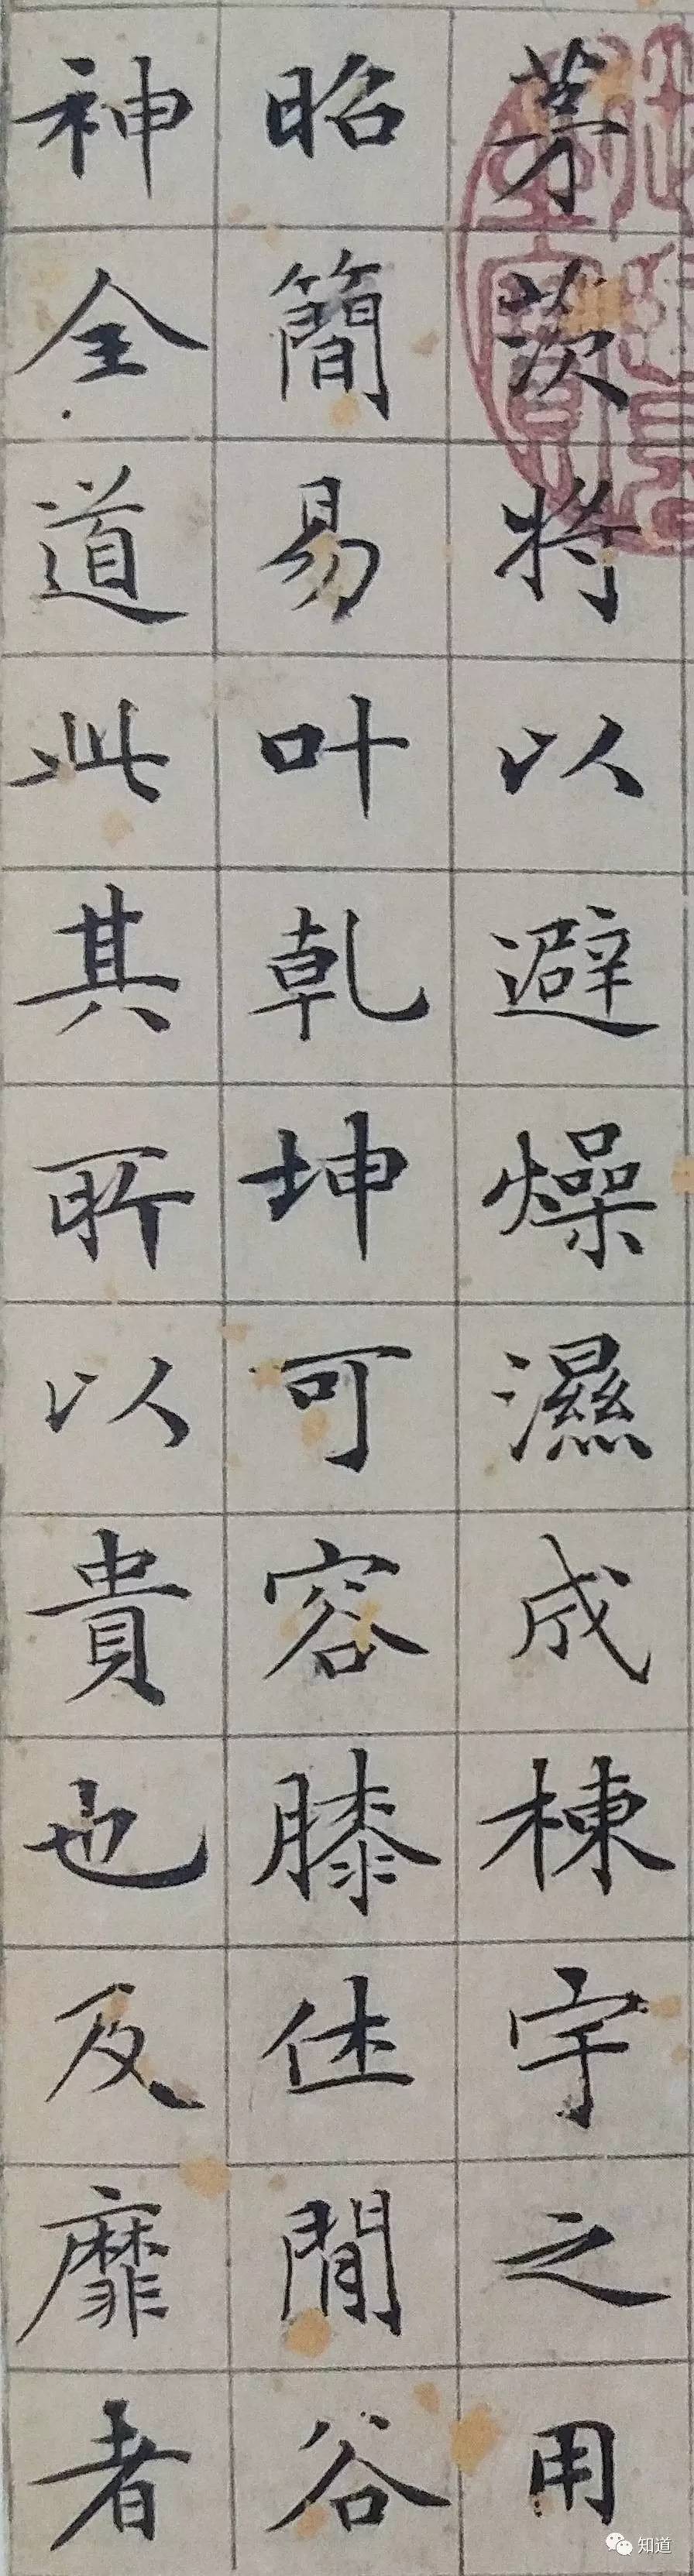 茅茨将以避燥濕成棟宇之用
昭簡易叶乹坤可容膝休閒谷
神全道此其所以貴也及靡者
知道